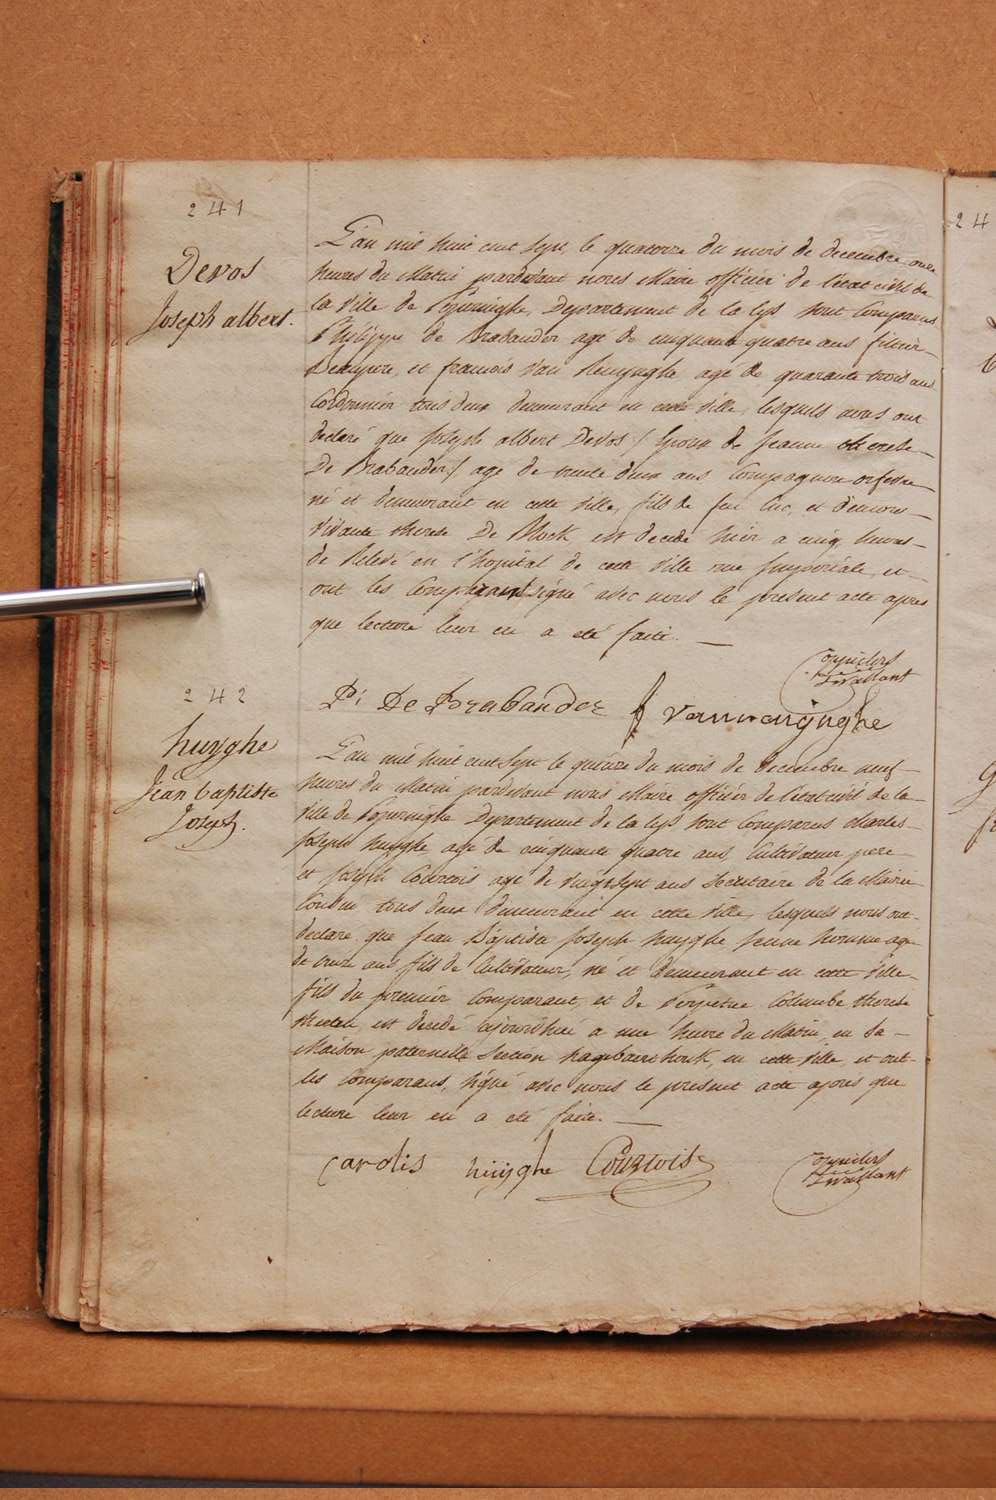 241
Devos
Joseph albert.
L'an mil huit cent sept, le quatorze du mois de decembre onze
heures du Matin pardevant nous Maire officier de l'état civil de
la Ville de Poperinghe, Département de la Lys sont Comparus
Philippe de Brabander agé de cinquante quatre ans
Beaupere, et francois Van agé de quarante trois ans
Cordonnier tous deux demeurant en cette Ville, lesquels nous ont
declaré que Joseph albert Devos / Epoux de Jeanne therese
De Brabander / agé de trente deux ans Compagnon orfevre
né et demeurant en cette Ville, fils de feu Luc, et d'encore
Vivante therese De Block est decedé hier a cinq heures
de Relevé en l'hopital de cette Ville rue Imperiale, et
ont les Comparants signé avec nous le present acte apres
que lecture leur en a eté faite.
P: De Brabander
242
huyghe
Jean baptiste
Joseph.
L'an mil huit cent sept le quinze du mois de decembre neuf
heures du Matin pardevant nous Maire officier de l'état civil de la
Ville de Poperinghe Département de la Lys sont Comparus Charles
Joseph huyghe agé de cinquante quatre ans, Cultivateur pere
et Joseph Courtois agé de vingt sept ans Secretaire de la Mairie
tous deux demeurant en cette Ville, lesquels nous ont
declaré que Jean Baptiste Joseph huyghe jeune homme agé
de ans fils de Cultivateur, né et demeurant en cette Ville
fils du premier Comparant, et de Perpetue Colombe therese
est decedé ajourd'hui a une heure du Matin, en sa
Maison paternelle Section en cette Ville, et ont
les Comparans, signé avec nous le present acte aprés que
lecture leur en a eté faite.
Carolis huyghe Courtois